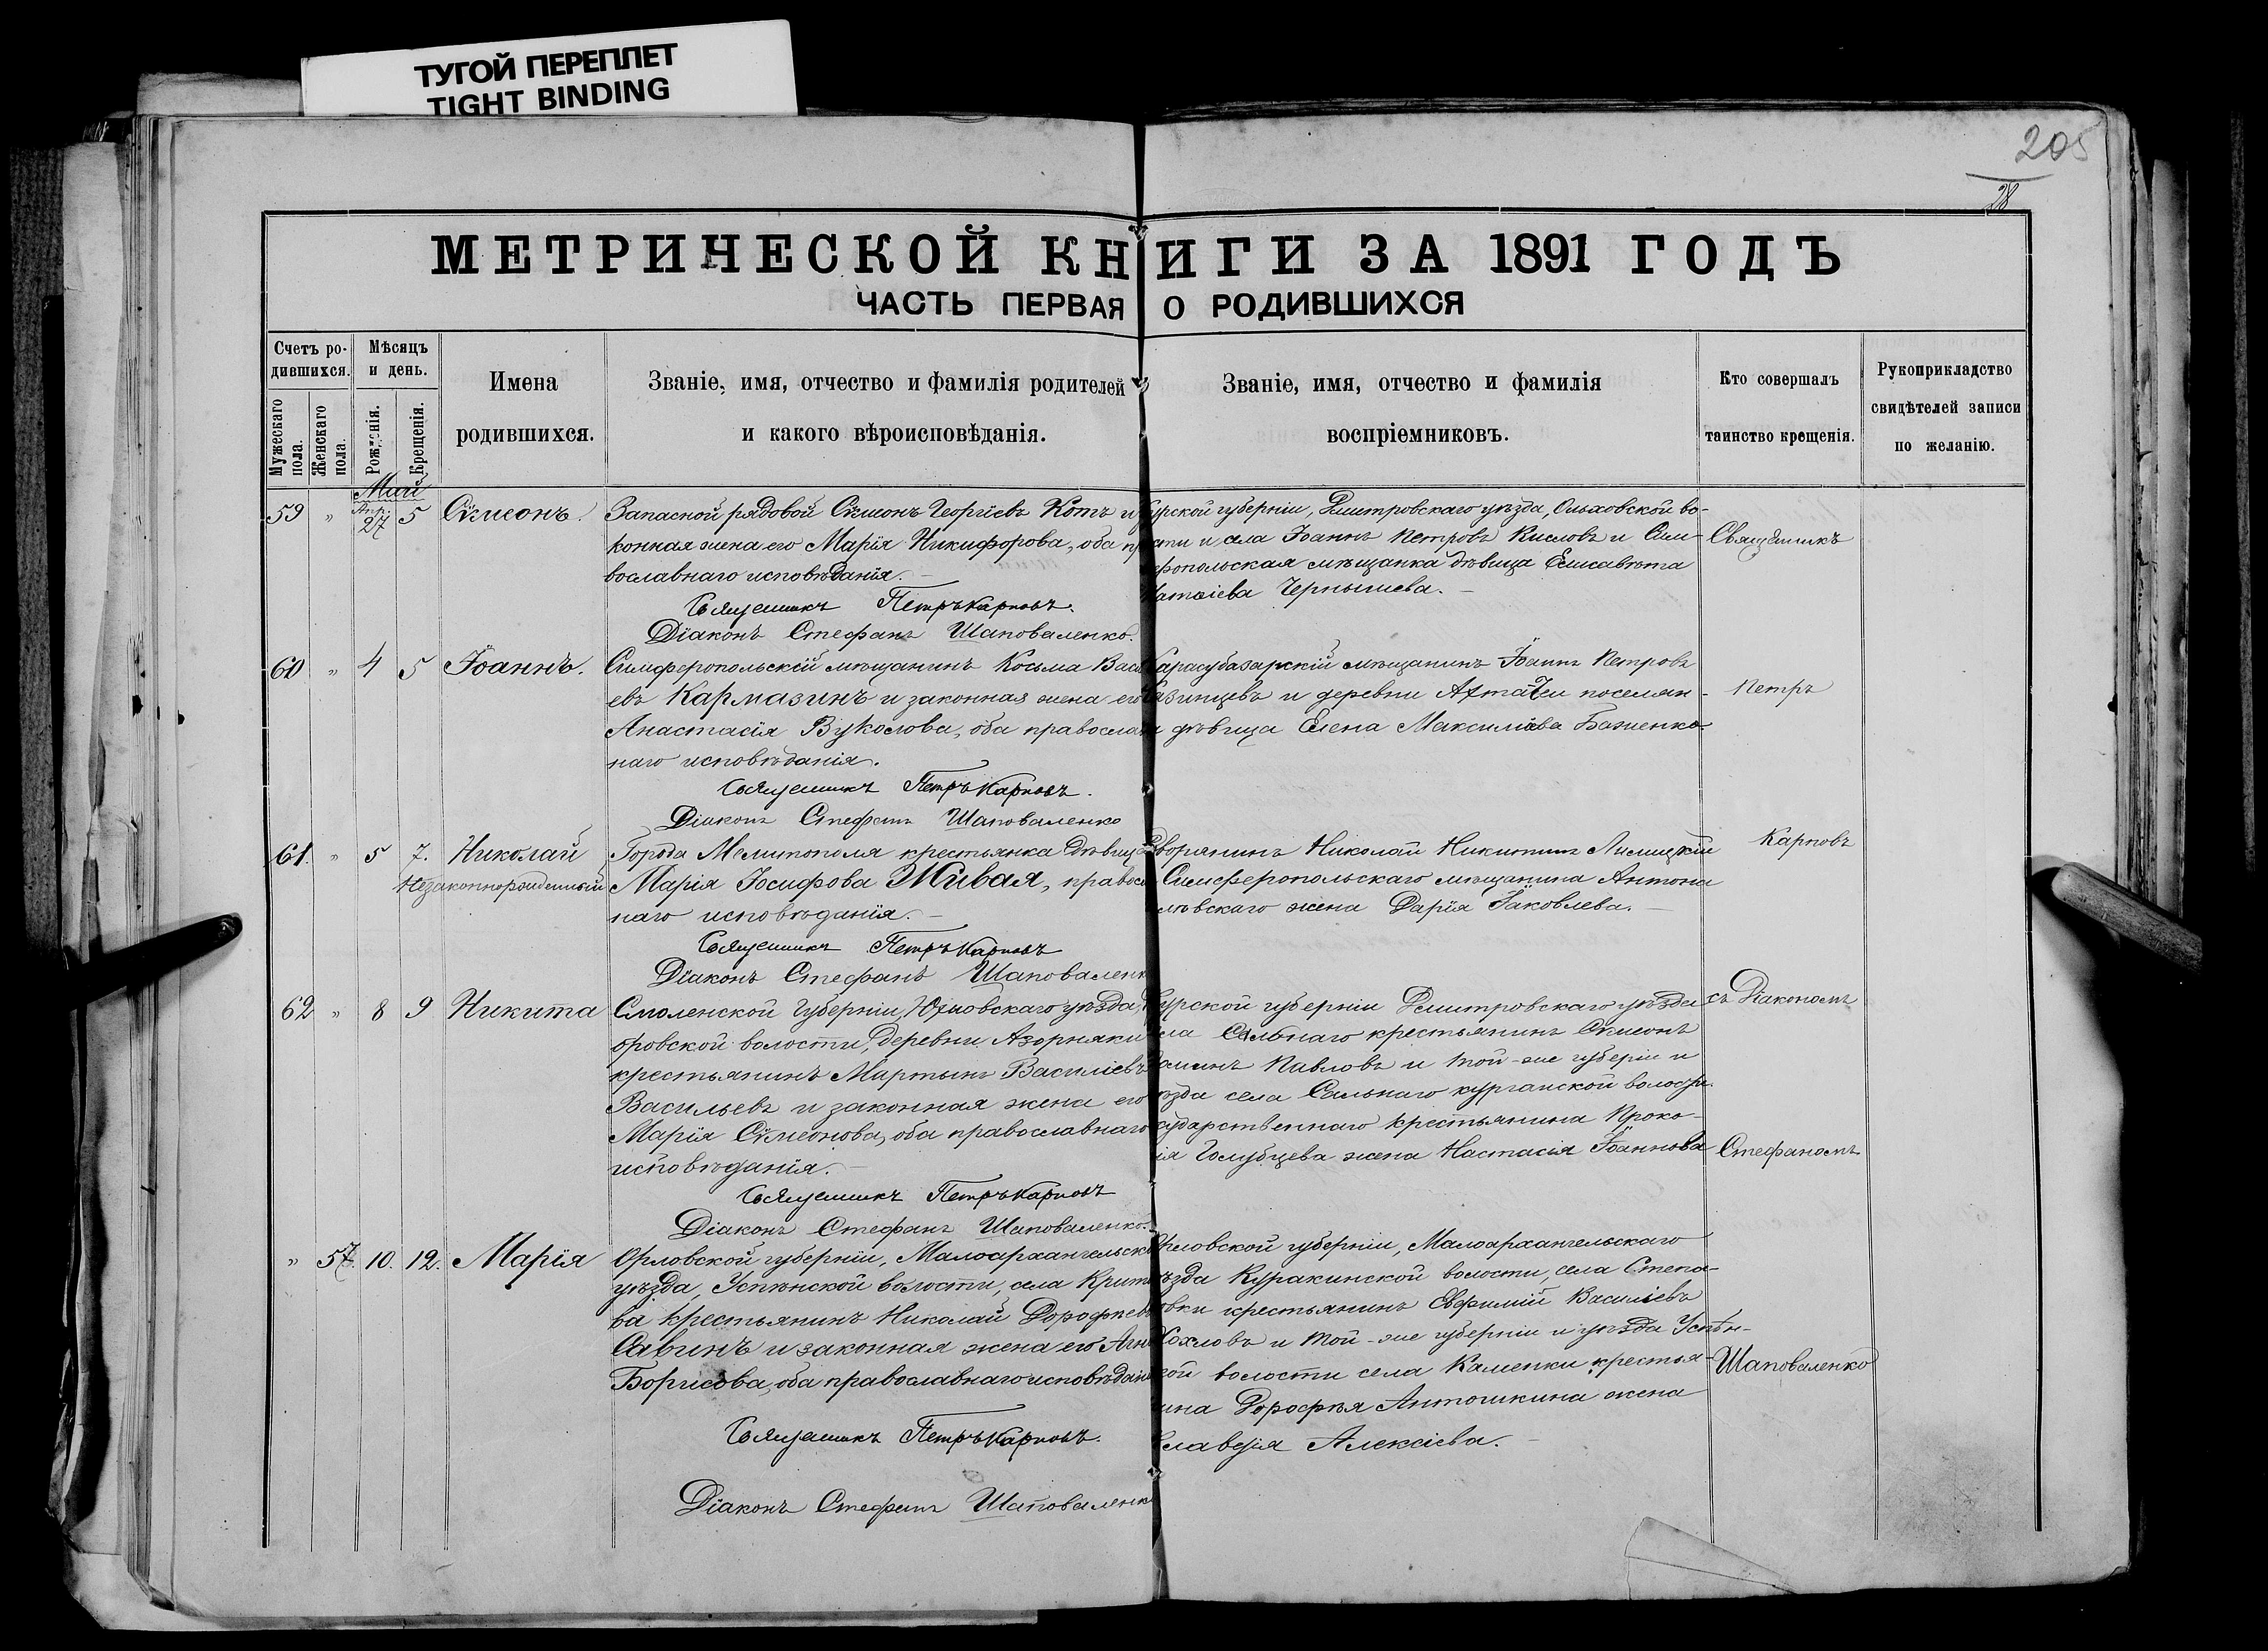 ТУГОЙ ПЕРЕПЛЕТ
TIGHT BINDING
205
28
МЕТРИЧЕСКОЙ КНИГИ ЗА 1891 ГОДЪ
ЧАСТЬ ПЕРВАЯ О РОДИВШИХСЯ
Счетъ ро-
дившихся.
Мужескаго пола.
Женскаго пола.
Мѣсяцъ
и день.
Рожденія.
Крещенія.
Имена
родившихся.
Званіе, имя, отчество и фамилія родителей
и какого вѣроисповѣданія.
Званіе, имя, отчество и фамилія
воспріемниковъ.
Кто совершалъ
таинство крещенія.
Рукоприкладство
свидѣтелей записи
по желанію.
Май
59 " Апр. 27 5 Сѵмеонъ.
Запасной рядовой Сѵмеонъ Георгіевъ Котъ и
конная жена его Марія Никифорова, оба пр
вославнаго исповѣданія.
Священникъ Петръ Карповъ.
Діаконъ Стефанъ Шаповаленко.
урской губерніи, Дмитровскаго уѣзда, Ольховской во-
сти и села Іоаннъ Петровъ Кисловъ и Сим-
фропольская мѣщанка дѣвица Елисавета
Матѳіева Чернышева.
60 " 4 5 Іоаннъ.
Симферопольскій мѣщанинъ Косьма Васи
евъ Кармазинъ и законная жена его
Анастасія Вуколова, оба православ
наго исповѣданія.
Священникъ Петръ Карповъ.
Діаконъ Стефанъ Шаповаленко
Карасубазарскій мѣщанинъ Іоаннъ Петровъ
и деревни поселян-
дѣвица Елена Баженко.
61. " 5 7. Николай
Незаконнорожденный
Города Мелитополя крестьянка дѣвица
Марія Іосифова Живая, правос
наго исповѣданія.
Священникъ Петръ Карповъ
Діаконъ Стефанъ Шаповаленк
Дворянинъ Николай Никитинъ
Симферопольскаго мѣщанина Антона
жена Дарія Іаковлева.
62 " 8 9 Никита
Смоленской губерніи, Юхновскаго уѣзда,
оровской волости, деревни Азорняки
крестьянинъ Мартынъ Василіевъ
Васильевъ и законная жена его
Марія Сѵмеонова, оба православнаго
исповѣданія.
Священникъ Петръ Карповъ
Діаконъ Стефанъ Шаповаленко.
Курской губерніи Дмитровскаго уѣзда
ела Сальнаго крестьянинъ Сѵмеонъ
Павловъ и той-же губерніи и
ѣзда села Сальнаго курганской волости
ударственнаго крестьянина Проко-
ія Голубцева жена Настасія Іоаннова
" 57. 10. 12. Марія
Орловской губерніи, Малоархангельска
уѣзда, Успѣнской волости, села Крит
ва крестьянинъ Николай Дорофѣев
Савинъ и законная жена его Агн
Борисова, оба православнаго исповѣдан
Священникъ Петръ Карповъ.
Діаконъ Стефанъ Шаповаленк
Орловской губерніи, Малоархангельскаго
ѣзда Куракинской волости, села Степа-
овки крестьянинъ Евфимій Василіевъ
Хохловъ и той-же губерніи и уѣзда Успѣн-
кой волости села Каменки крестья-
ина Дорофѣя Антошкина жена
Клавдія Алексіева.
Священникъ
Петръ
Карповъ
съ Діакономъ
Стефаномъ
Шаповаленко